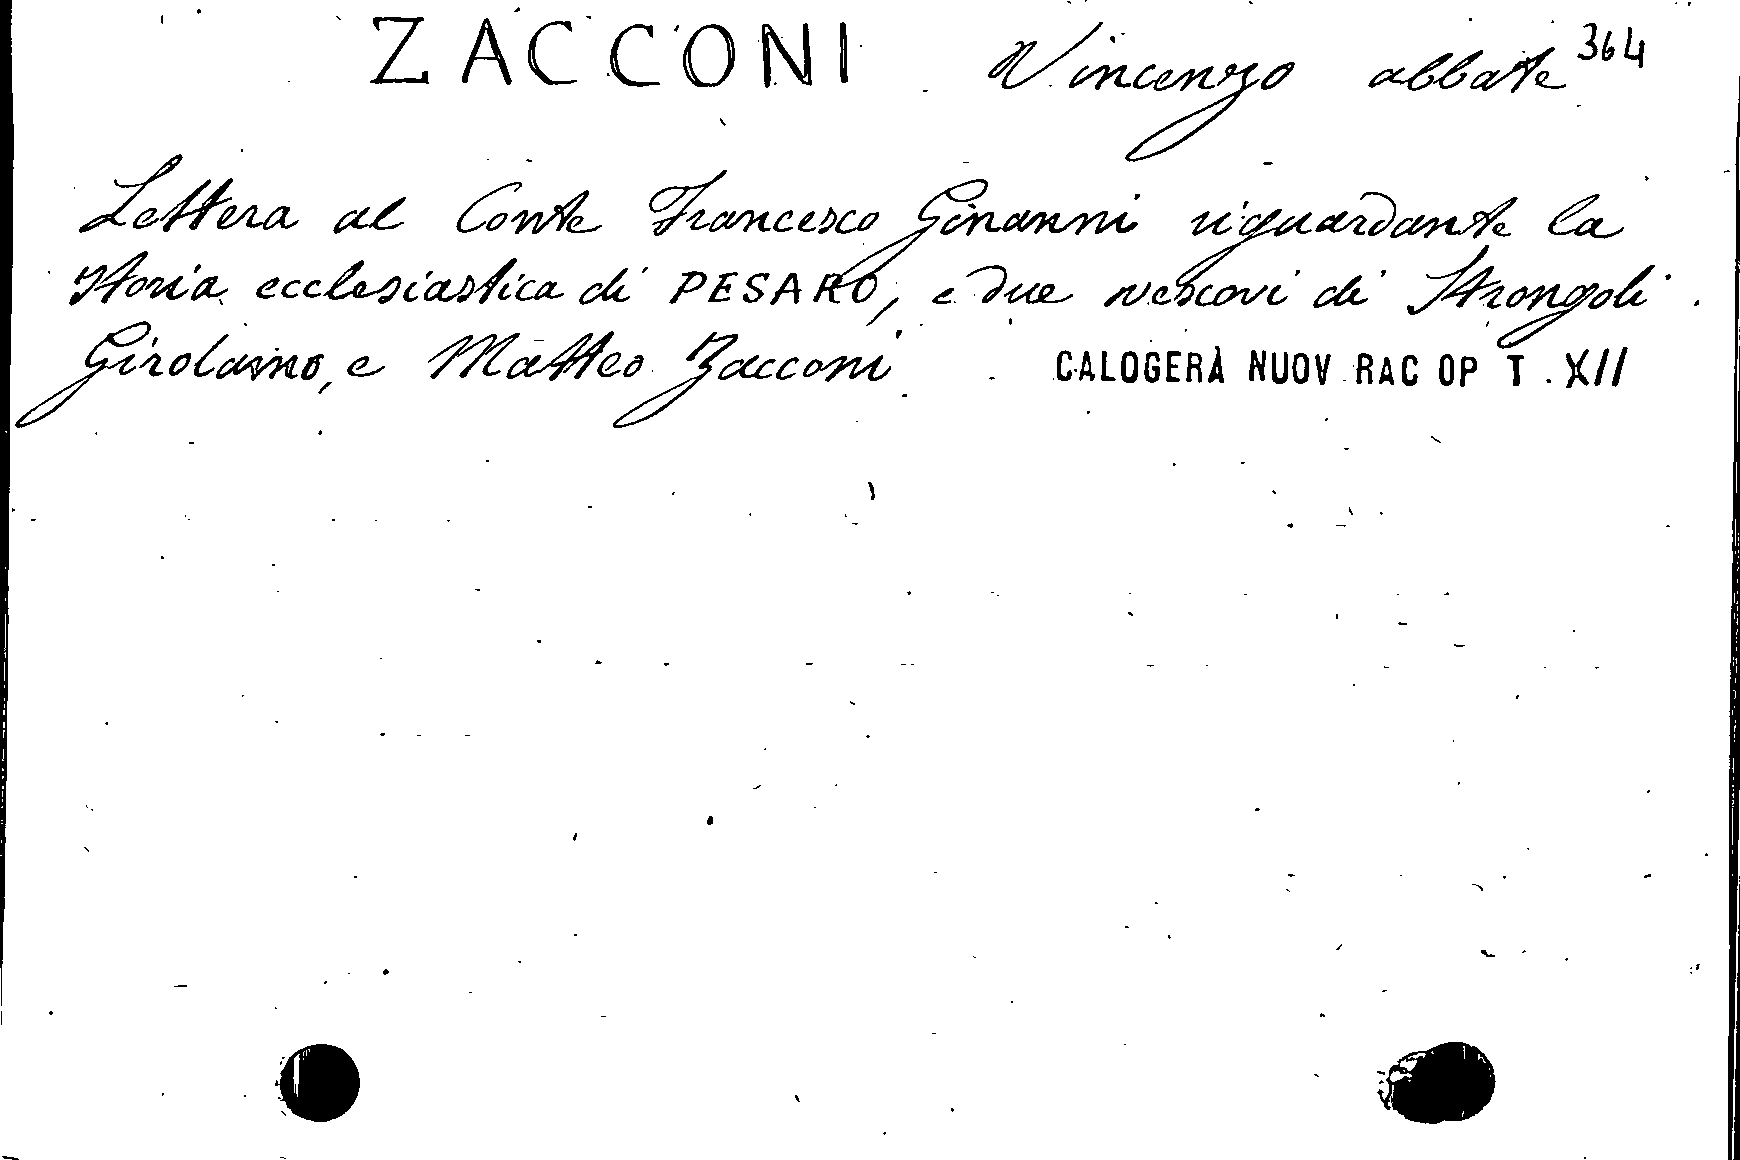 ZACCONI Vincenzo abbate 364
Lettera al Conte Francesco Ginanni riguardante la
storia ecclesiastica di PESARO, e due vescovi di Strongoli
Girolamo, e Matteo Zacconi CALOGERÀ NUOV RAC OP T. XII